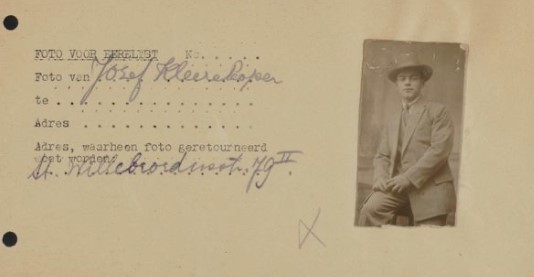 FOTO VOOR EERELYST No. . . . . .
Foto van Jozef Kleerekoper
te . . . . . . . . . . . . . .
Adres . . . . . . . . . . . .
Adres, waarheen foto geretourneerd
moet worden
St. Willebrordusstr. 79 II.